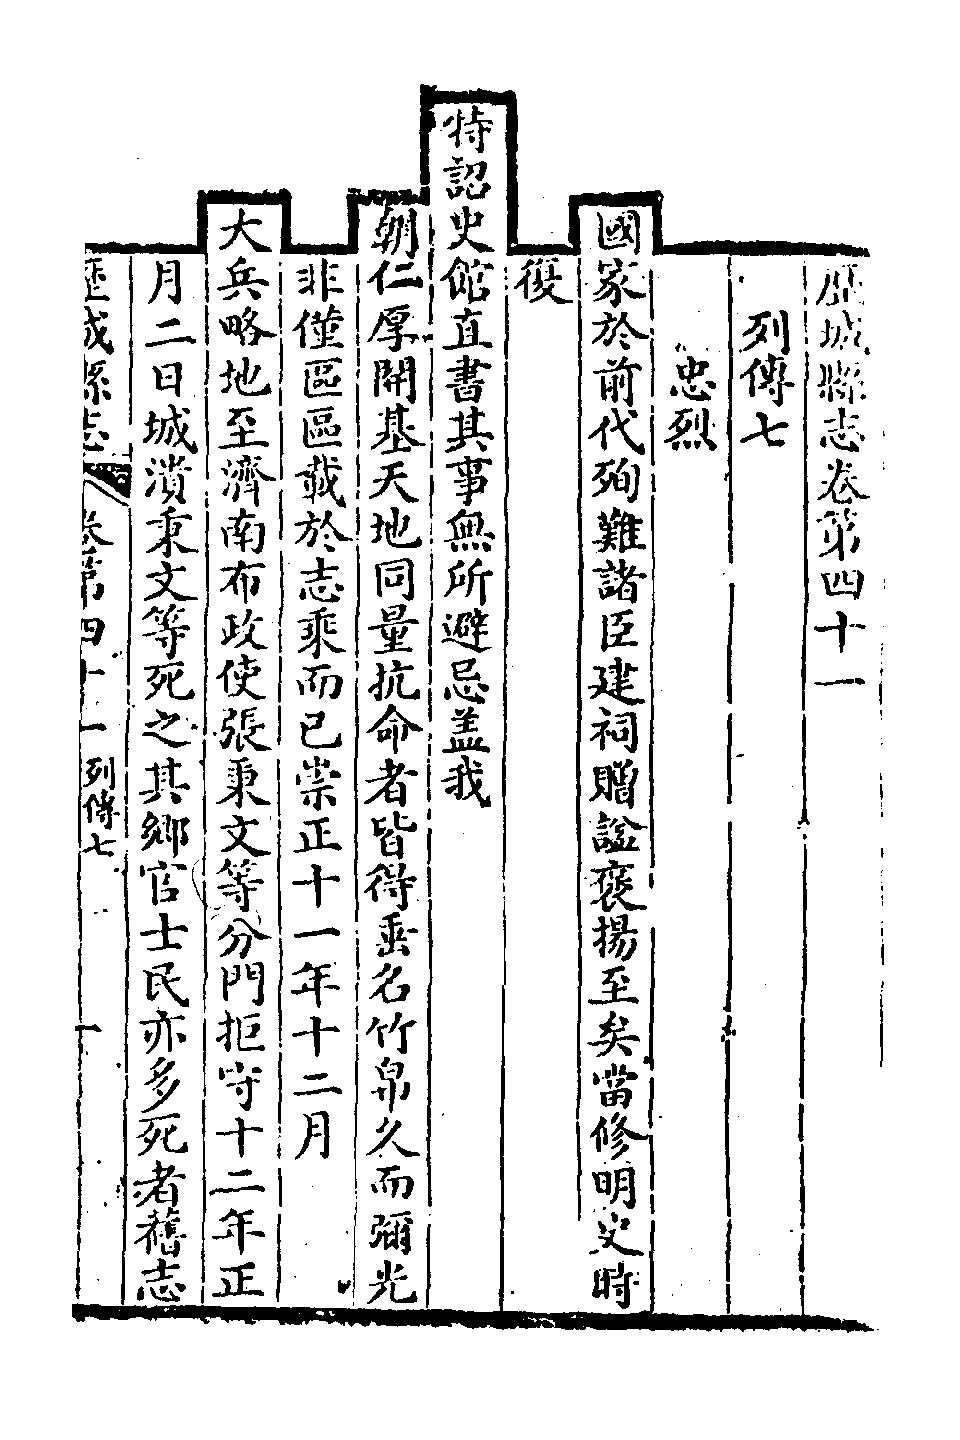 歷城縣志卷第四十一
列傳七
忠烈
國家於前代殉難諸臣建祠贈諡褒揚至矣當修明史時
復
特詔史館直書其事無所避忌盖我
朝仁厚開基天地同量抗命者皆得垂名竹帛久而彌光
非僅區區載於志乘而已崇正十一年十二月
大兵略地至濟南布政使張秉文等分門拒守十二年正
月二日城潰秉文等死之其鄉官士民亦多死者舊志
歷城縣志 卷第四十一 列傳七 一